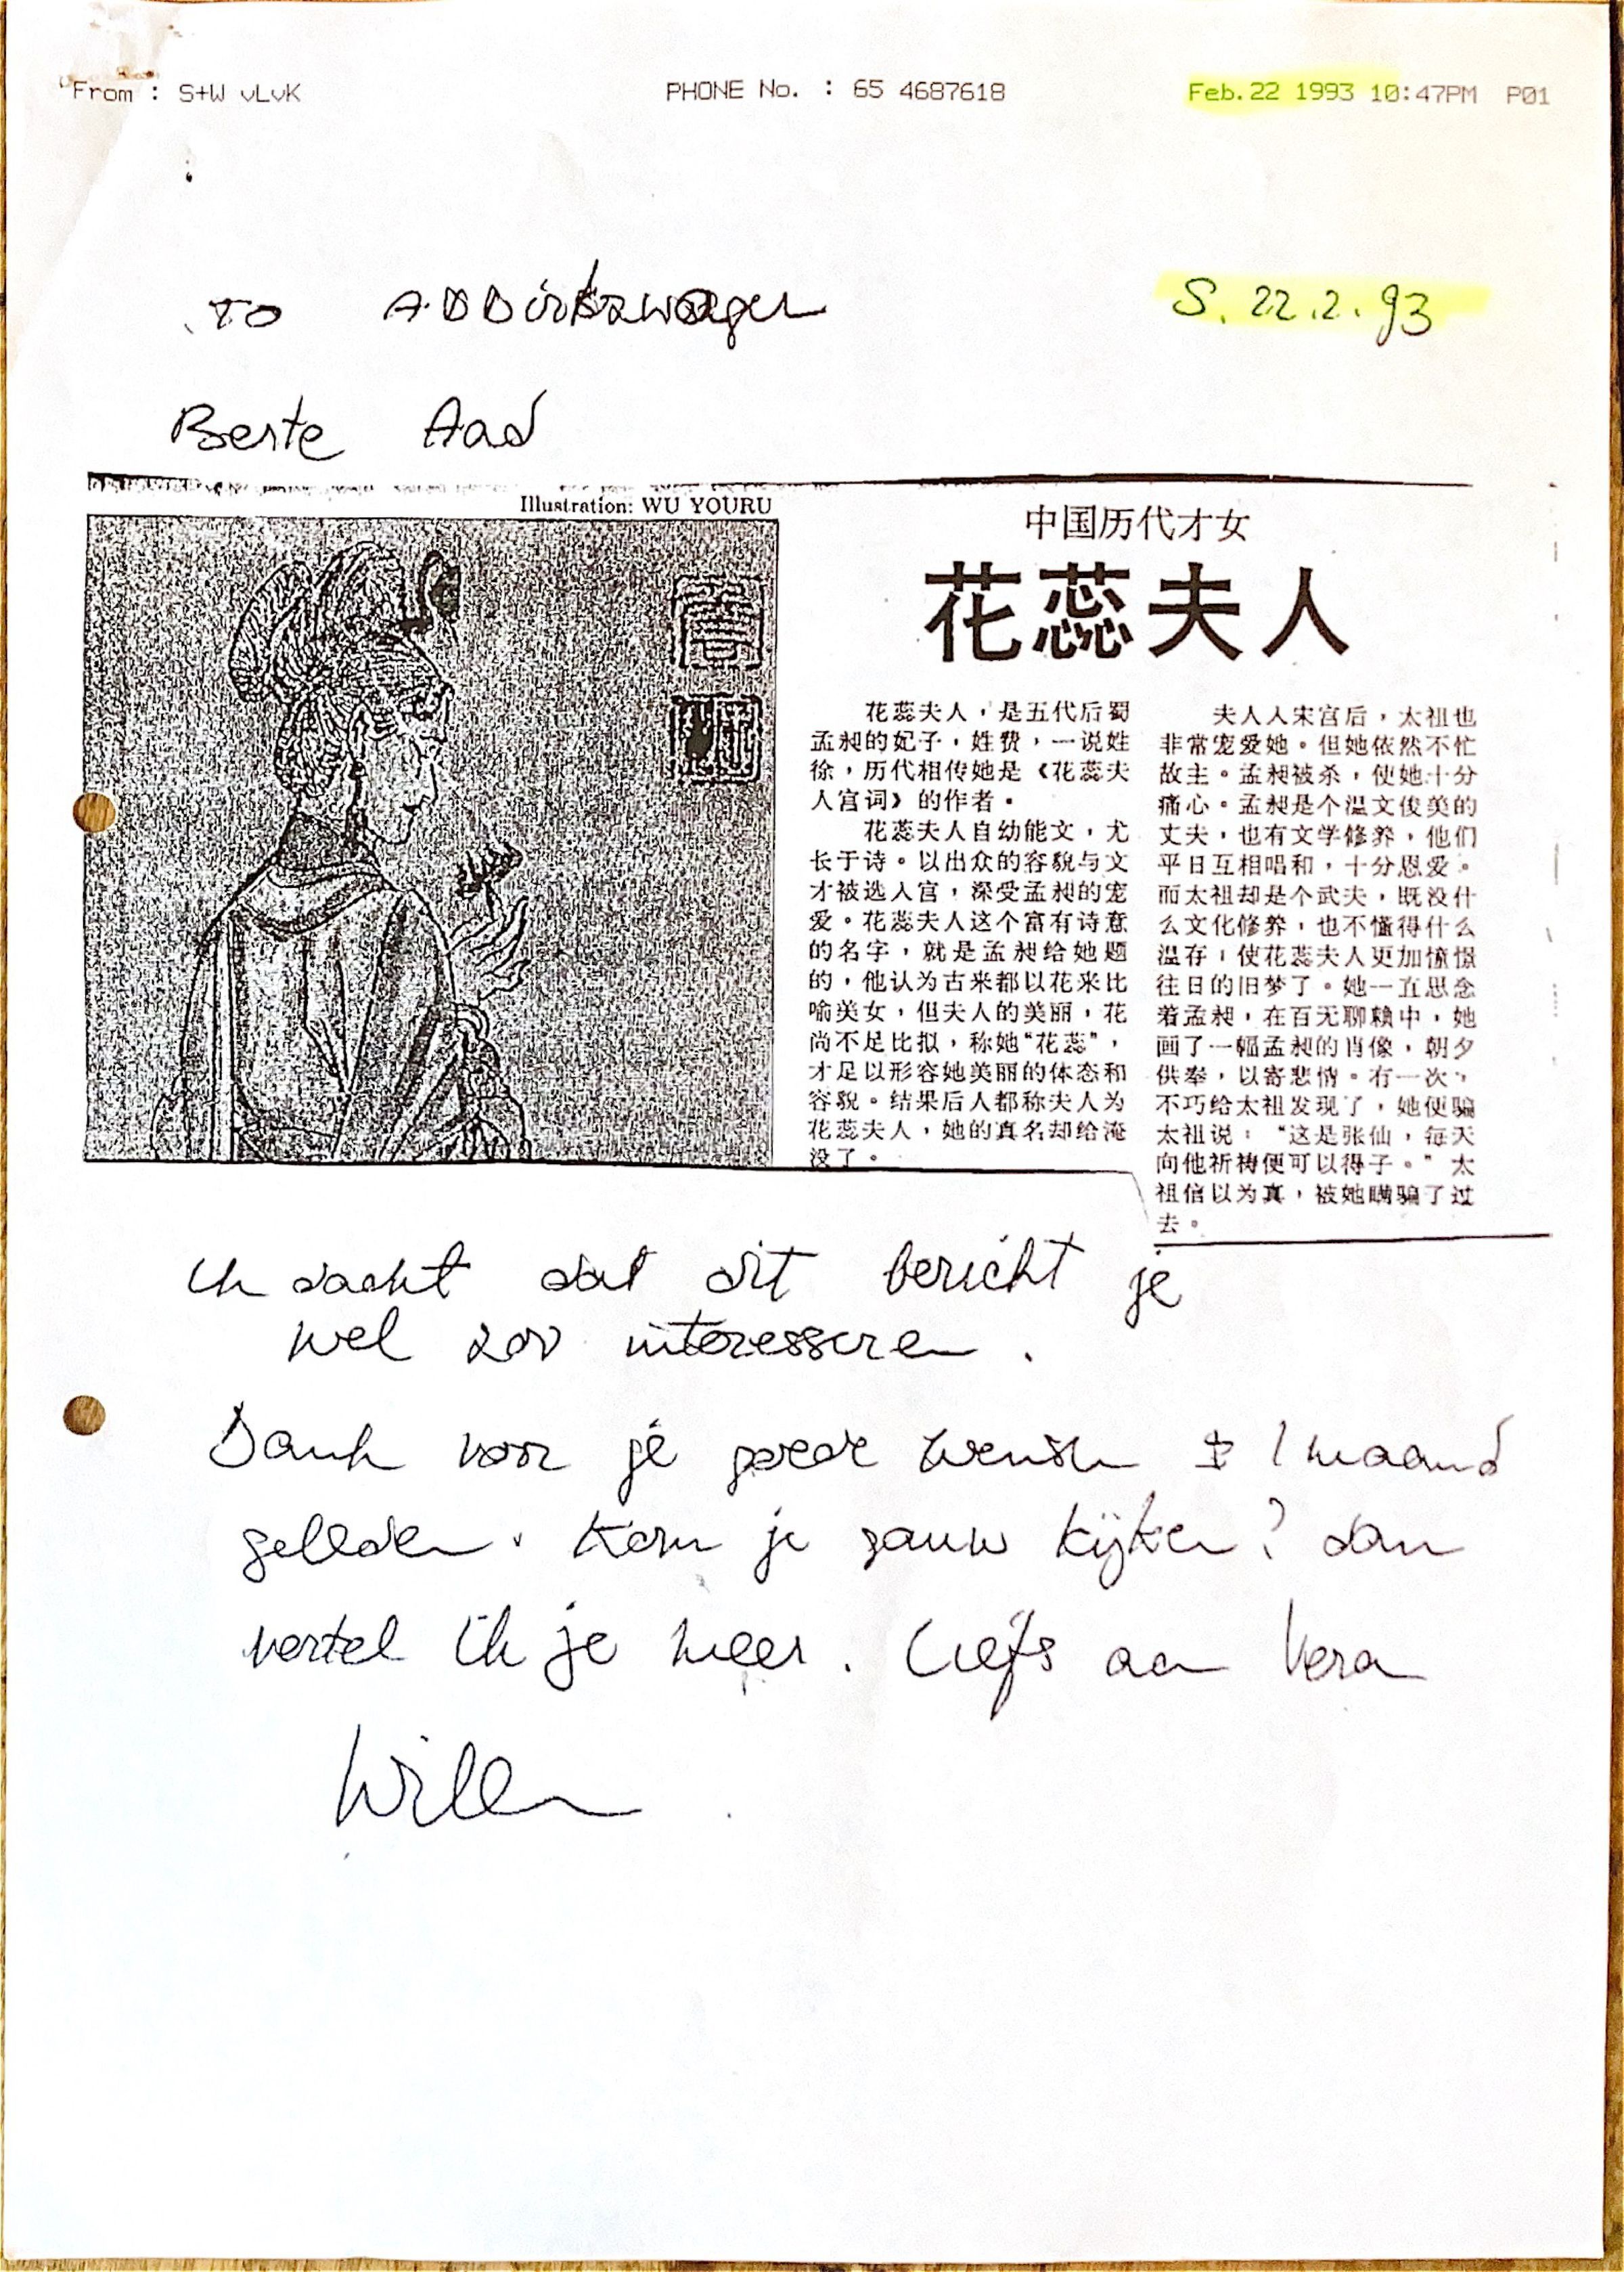 From : S+W vLvK PHONE No. : 65 4687618 Feb.22 1993 10:47PM P01
TO A.D Dirkzwager S. 22.2.93
Beste Aad
Illustration: WU YOURU
中国历代才女
花蕊夫人
花蕊夫人，是五代后蜀
孟昶的妃子，姓费，一说姓
徐，历代相传她是《花蕊夫
人宫词》的作者。
花蕊夫人自幼能文，尤
长于诗。以出众的容貌与文
才被选入宫，深受孟昶的宠
爱。花蕊夫人这个富有诗意
的名字，就是孟昶给她题
的，他认为古来都以花来比
喻美女，但夫人的美丽，花
尚不足比拟，称她“花蕊”，
才足以形容她美丽的体态和
容貌。结果后人都称夫人为
花蕊夫人，她的真名却给淹
没了。
夫人入宋宫后，太祖也
非常宠爱她。但她依然不忙
故主。孟昶被杀，使她十分
痛心。孟昶是个温文俊美的
丈夫，也有文学修养，他们
平日互相唱和，十分恩爱。
而太祖却是个武夫，既没什
么文化修养，也不懂得什么
温存，使花蕊夫人更加憧憬
往日的旧梦了。她一直思念
着孟昶，在百无聊赖中，她
画了一幅孟昶的肖像，朝夕
供奉，以寄悲情。有一次，
不巧给太祖发现了，她便骗
太祖说：“这是张仙，每天
向他祈祷便可以得子。”太
祖信以为真，被她瞒骗了过
去。
Ik dacht dat dit bericht je
wel zou interesseren.
Dank voor je goede wensen ± 1 maand
geleden. Kom je gauw kijken? dan
vertel ik je meer. Liefs aan Vera
Willem